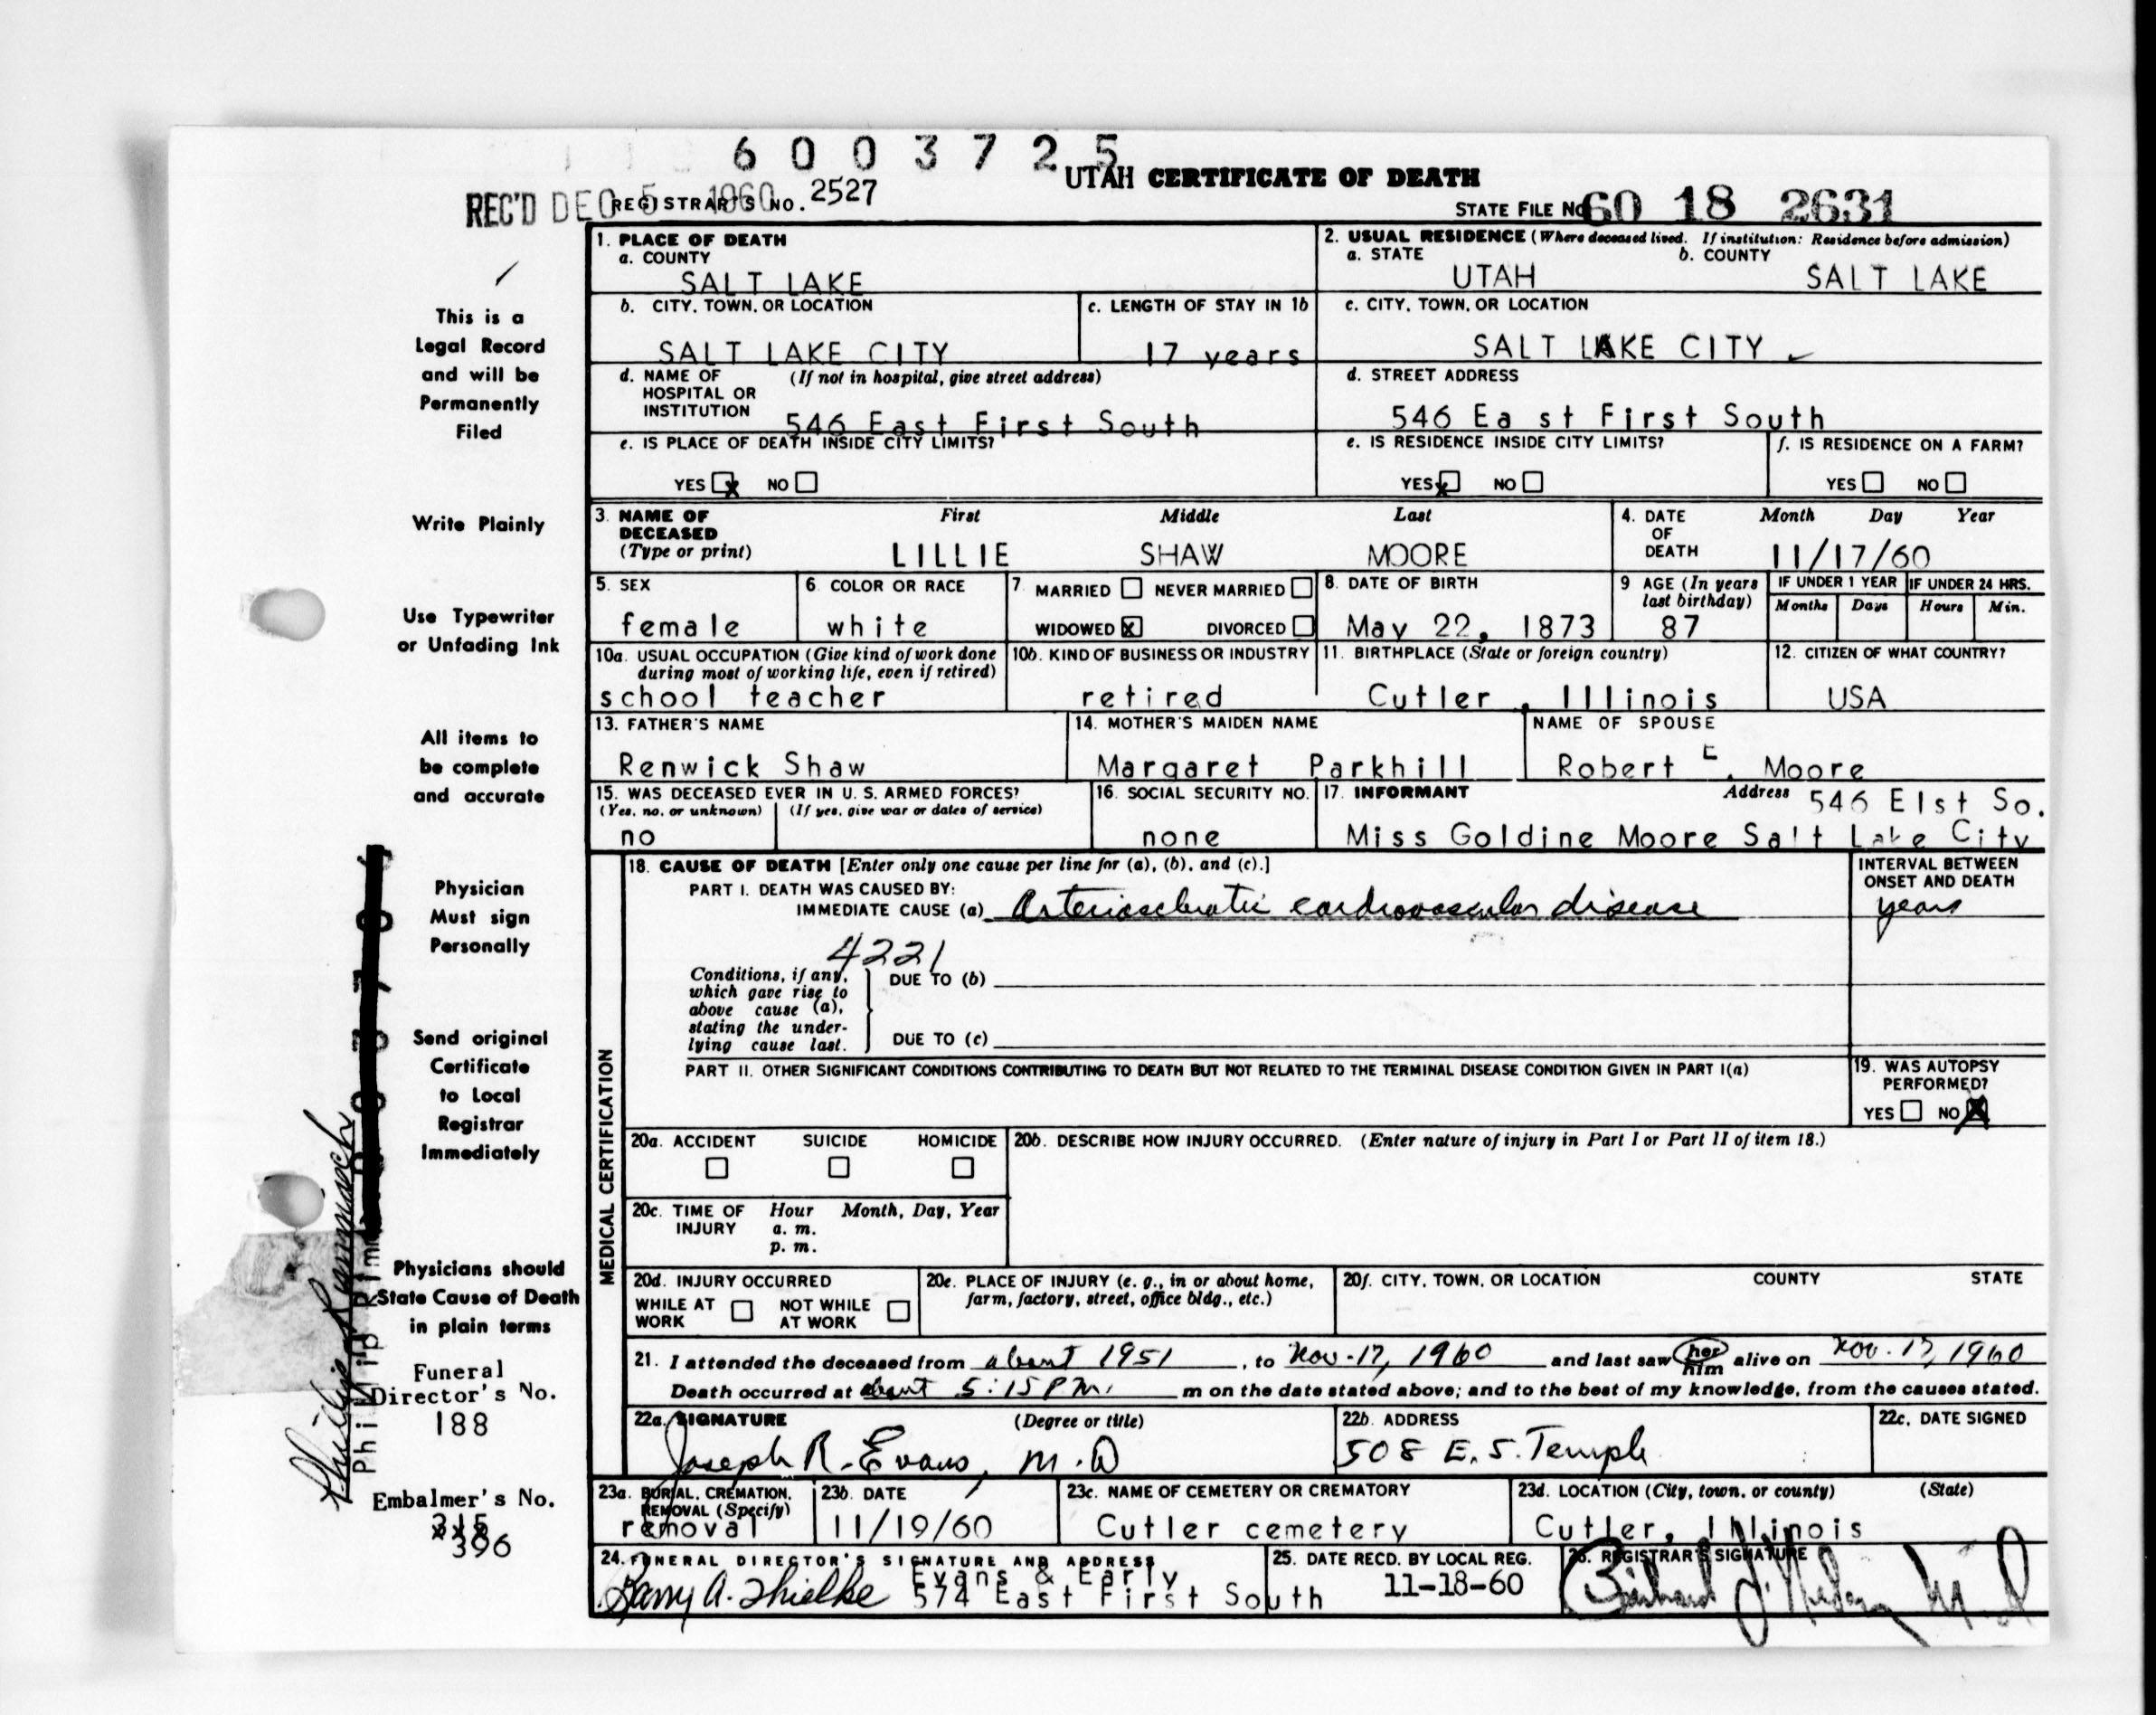 6 0 0 3 7 2 5
UTAH CERTIFICATE OF DEATH
REC'D DEC 5 1960
REGISTRAR'S NO. 2527
STATE FILE NO. 60 18 2631
1. PLACE OF DEATH
a. COUNTY
SALT LAKE
2. USUAL RESIDENCE (Where deceased lived. If institution: Residence before admission)
a. STATE b. COUNTY
UTAH SALT LAKE
b. CITY, TOWN, OR LOCATION
SALT LAKE CITY
c. LENGTH OF STAY IN 1b
17 years
c. CITY, TOWN, OR LOCATION
SALT LAKE CITY
d. NAME OF (If not in hospital, give street address)
HOSPITAL OR
INSTITUTION 546 East First South
d. STREET ADDRESS
546 Ea st First South
e. IS PLACE OF DEATH INSIDE CITY LIMITS?
YES x NO
e. IS RESIDENCE INSIDE CITY LIMITS?
YES x NO
f. IS RESIDENCE ON A FARM?
YES NO
3. NAME OF DECEASED First Middle Last
(Type or print) LILLIE SHAW MOORE
4. DATE OF DEATH Month Day Year
11/17/60
5. SEX
female
6. COLOR OR RACE
white
7. MARRIED NEVER MARRIED
WIDOWED X DIVORCED
8. DATE OF BIRTH
May 22, 1873
9 AGE (In years last birthday)
87
IF UNDER 1 YEAR IF UNDER 24 HRS.
Months Days Hours Min.
10a. USUAL OCCUPATION (Give kind of work done
during most of working life, even if retired)
school teacher
10b. KIND OF BUSINESS OR INDUSTRY
retired
11. BIRTHPLACE (State or foreign country)
Cutler , Illinois
12. CITIZEN OF WHAT COUNTRY?
USA
13. FATHER'S NAME
Renwick Shaw
14. MOTHER'S MAIDEN NAME
Margaret Parkhill
NAME OF SPOUSE
Robert E. Moore
15. WAS DECEASED EVER IN U. S. ARMED FORCES?
(Yes, no, or unknown) (If yes, give war or dates of service)
no
16. SOCIAL SECURITY NO.
none
17. INFORMANT Address 546 E1st So.
Miss Goldine Moore Salt Lake City
MEDICAL CERTIFICATION
18. CAUSE OF DEATH [Enter only one cause per line for (a), (b), and (c).]
PART I. DEATH WAS CAUSED BY:
IMMEDIATE CAUSE (a) Arteriosclerotic cardiovascular disease
INTERVAL BETWEEN
ONSET AND DEATH
years
4221
Conditions, if any,
which gave rise to
above cause (a),
stating the under-
lying cause last.
DUE TO (b)
DUE TO (c)
PART II. OTHER SIGNIFICANT CONDITIONS CONTRIBUTING TO DEATH BUT NOT RELATED TO THE TERMINAL DISEASE CONDITION GIVEN IN PART I(a)
19. WAS AUTOPSY
PERFORMED?
YES NO X
20a. ACCIDENT SUICIDE HOMICIDE
20b. DESCRIBE HOW INJURY OCCURRED. (Enter nature of injury in Part I or Part II of item 18.)
20c. TIME OF INJURY Hour Month, Day, Year
a. m.
p. m.
20d. INJURY OCCURRED
WHILE AT WORK NOT WHILE AT WORK
20e. PLACE OF INJURY (e. g., in or about home,
farm, factory, street, office bldg., etc.)
20f. CITY, TOWN, OR LOCATION COUNTY STATE
21. I attended the deceased from about 1951, to Nov-17, 1960 and last saw her him alive on Nov. 17, 1960
Death occurred at about 5:15 PM. m on the date stated above; and to the best of my knowledge, from the causes stated.
22a. SIGNATURE (Degree or title)
Joseph R. Evans, M.D
22b. ADDRESS
508 E. S. Temple
22c. DATE SIGNED
23a. BURIAL, CREMATION,
REMOVAL (Specify)
removal
23b. DATE
11/19/60
23c. NAME OF CEMETERY OR CREMATORY
Cutler cemetery
23d. LOCATION (City, town, or county) (State)
Cutler, Illinois
24. FUNERAL DIRECTOR'S SIGNATURE AND ADDRESS
Evans & Early
574 East First South
25. DATE RECD. BY LOCAL REG.
11-18-60
26. REGISTRAR'S SIGNATURE
This is a
Legal Record
and will be
Permanently
Filed
Write Plainly
Use Typewriter
or Unfading Ink
All items to
be complete
and accurate
Physician
Must sign
Personally
Send original
Certificate
to Local
Registrar
Immediately
Physicians should
State Cause of Death
in plain terms
Funeral
Director's No.
188
Embalmer's No.
396